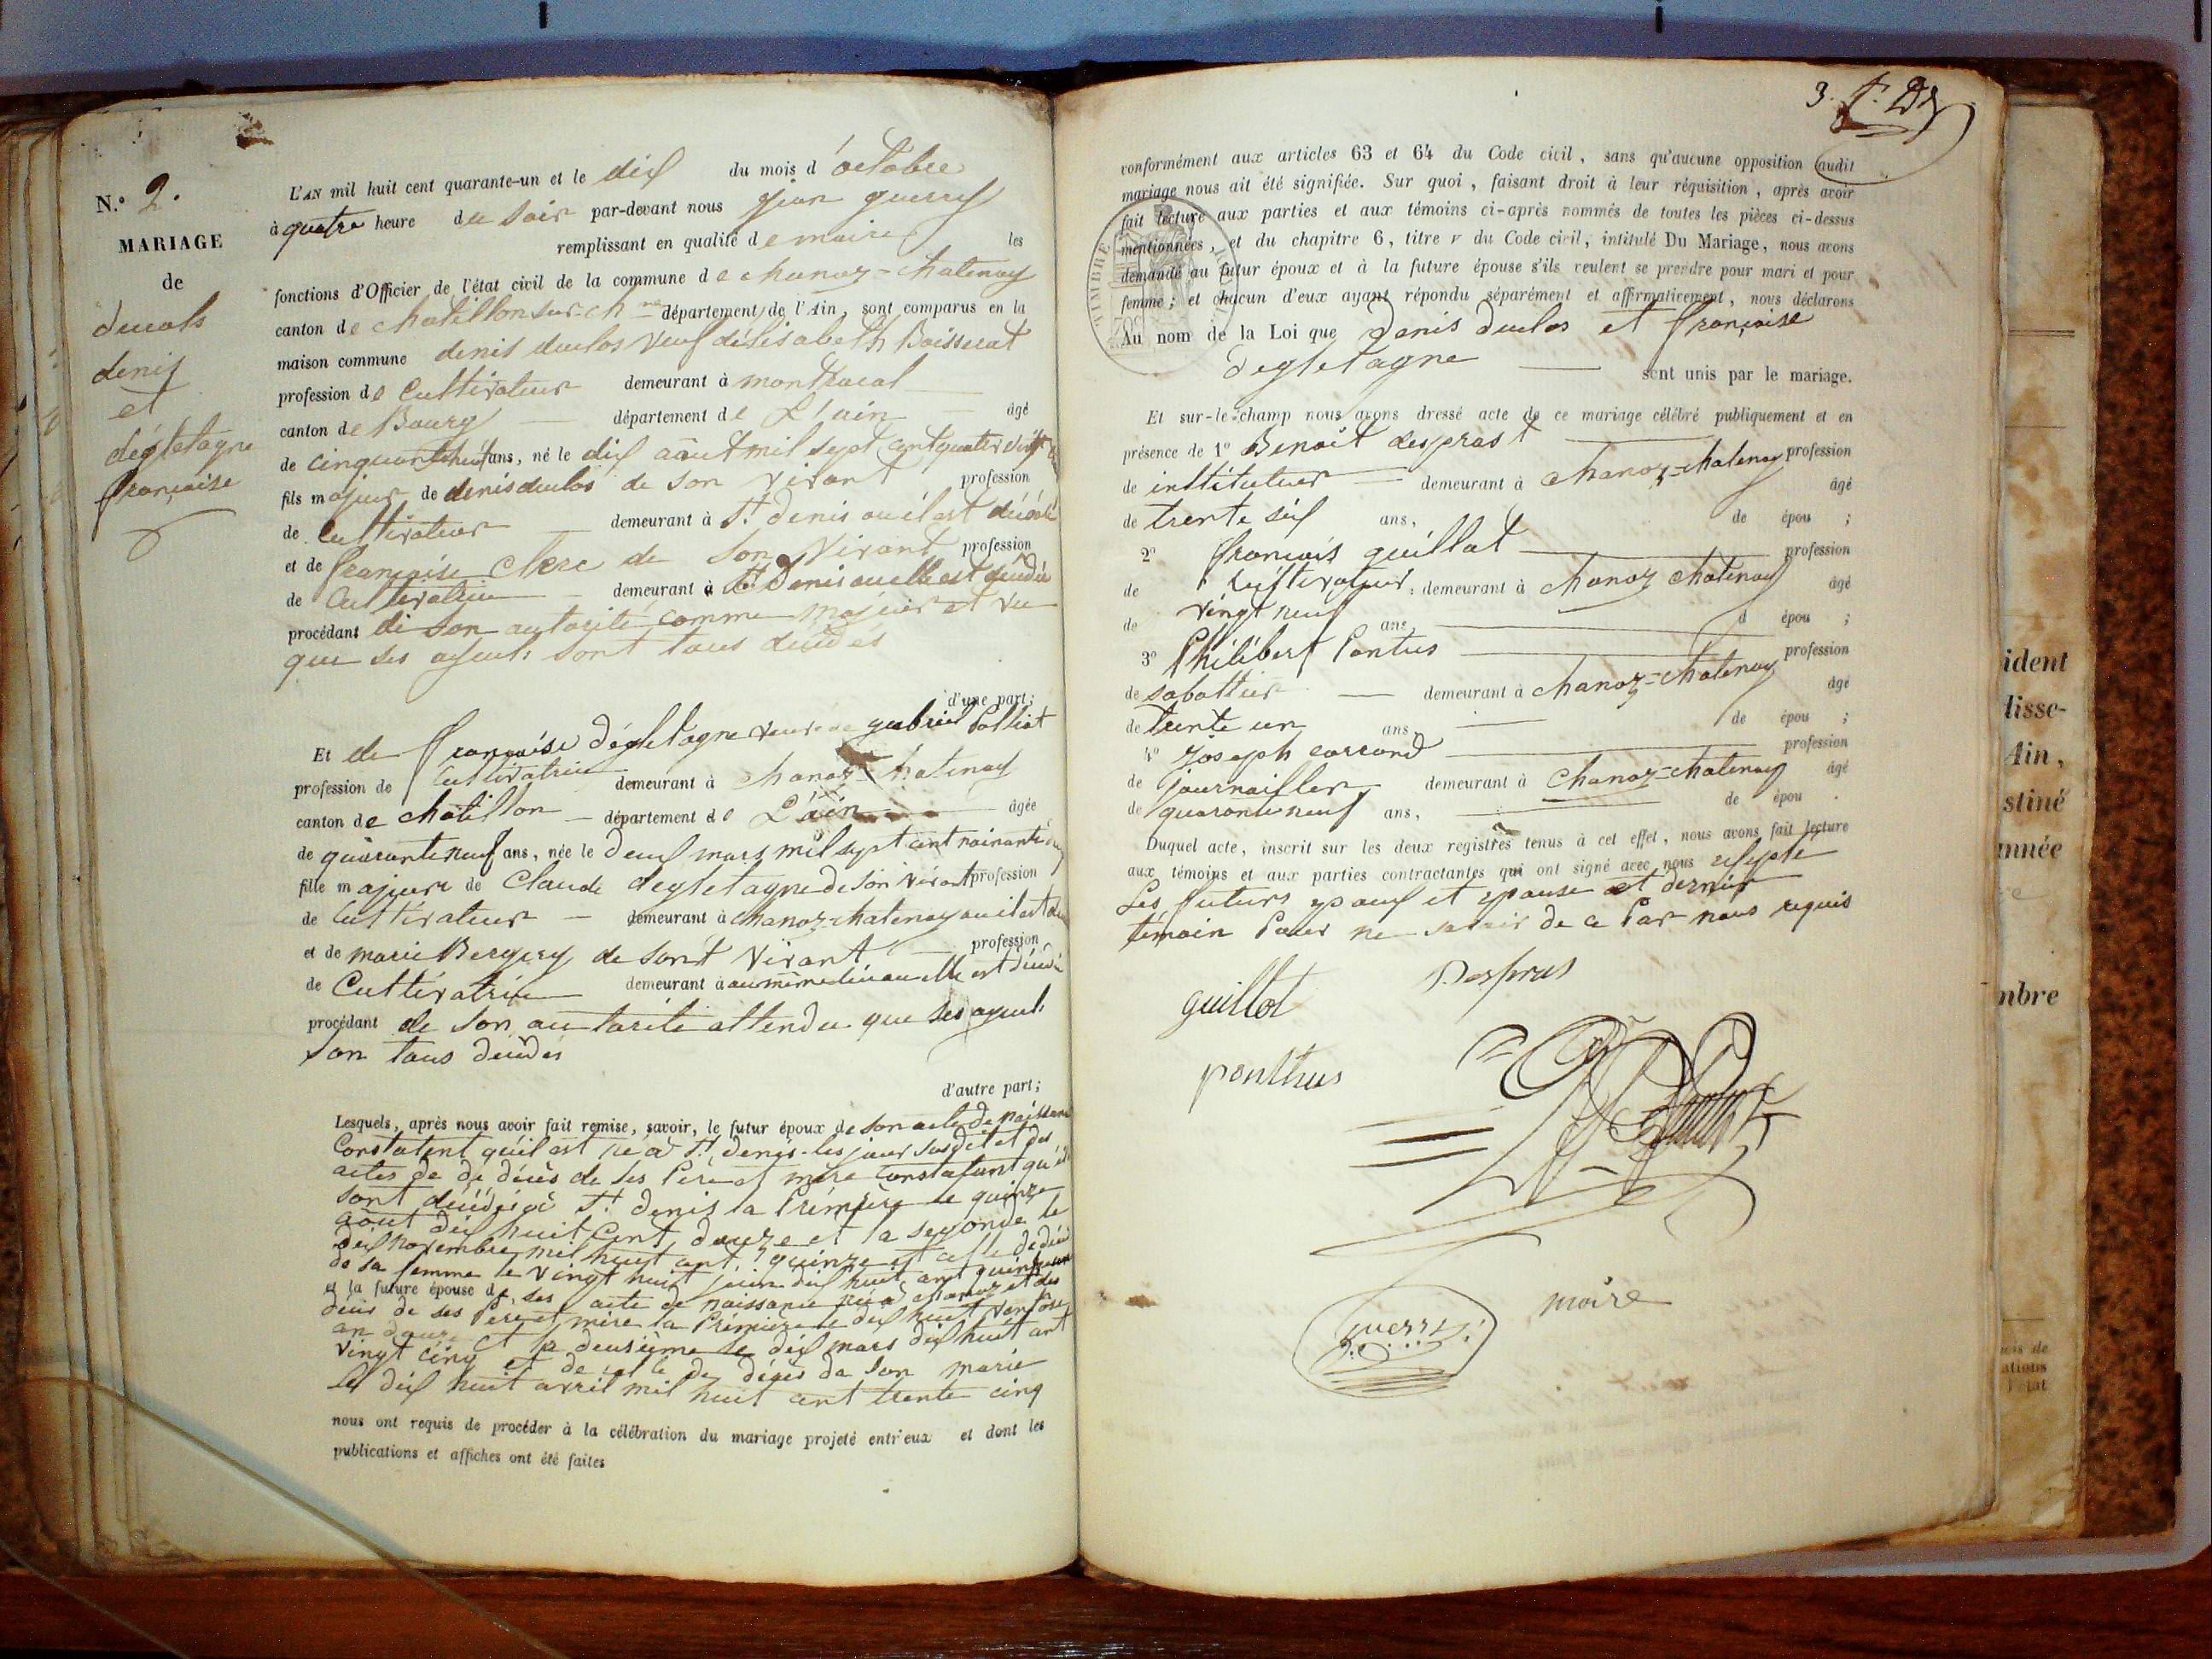 N.º 2.
MARIAGE
de
ducols
denis
et
degletagne
françoise
L'AN mil huit cent quarante-un et le dix du mois d'octobre
à quatre heure du soir par-devant nous jean guerry
remplissant en qualité de maire les
fonctions d'Officier de l'état civil de la commune de chanoz-chatenay
canton de chatillon sur-ch ne département de l'Ain, sont comparus en la
maison commune denis duclos veuf délisabeth Boisserat
profession de Cultivateur demeurant à montracal
canton de Bourg département de L'ain âgé
de cinquantehuit ans, né le dix aôut mil sept cent quatre vingt
fils majeur de denis duclos de son vivant profession
de Cultivateur demeurant à St. denis ou il est décédé
et de françoise Clerc de son vivant profession
de Cultivatrice demeurant à St. Denis ou elle est décédée
procédant de son autorité comme majeur et vu
que ses ayeuls sont tous décédés
d'une part;
Et de françoise dégletagne veuve de gabriel Polliat
profession de Cultivatrice demeurant à chanoz-chatenay
canton de chatillon département de L'ain âgée
de quarante neuf ans, née le deux mars mil sept cent nonante
fille majeure de Claude degletagne de son vivant profession
de Cultivateur demeurant à chanoz-chatenay ou il est
et de marie Bergery de sont vivant profession
de Cultivatrice demeurant à au même lieu ou elle est décédée
procédant de son autorité attendu que ses ayeuls
son tous décédés
d'autre part;
Lesquels, après nous avoir fait remise, savoir, le futur époux de son acte de naissance
Constatent qu'il est né à St. denis les jour susdit et des
actes de de décès de ses Père et mère constatant qu'ils
sont décédés à St. denis la Première le quinze
aôut dix huit cent douze et la seconde le
dix novembre mil huit cent quinze et celle de décès
de sa femme le vingt huit juin dix huit cent
et la future épouse de ses acte de naissance née à chanoz et des
décès de ses Père et mère la Première le dix huit Ventôse
an douze et la deusième le dix mars dix huit cent
vingt cinq et de celle de décès de son marie
le dix huit avril mil huit cent trente cinq
nous ont requis de procéder à la célébration du mariage projeté entr'eux et dont les
publications et affiches ont été faites
3.
conformément aux articles 63 et 64 du Code civil, sans qu'aucune opposition audit
mariage nous ait été signifiée. Sur quoi, faisant droit à leur réquisition, après avoir
fait lecture aux parties et aux témoins ci-après nommés de toutes les pièces ci-dessus
mentionnées, et du chapitre 6, titre V du Code civil, intitulé Du Mariage, nous avons
demandé au futur époux et à la future épouse s'ils veulent se prendre pour mari et pour
femme; et chacun d'eux ayant répondu séparément et affirmativement, nous déclarons
Au nom de la Loi que Denis duclos et françoise
degletagne sont unis par le mariage.
Et sur-le-champ nous avons dressé acte de ce mariage célébré publiquement et en
présence de 1º Benoît despras profession
de instituteur demeurant à chanoz-chatenay âgé
de trente six ans, de épou ;
2º françois guillot profession
de Cultivateur, demeurant à chanoz chatenay âgé
de vingt neuf ans, d épou ;
3º Philibert Pontus profession
de sabottier demeurant à chanoz-chatenay âgé
de trente un ans de épou ;
4º Joseph corrond profession
de journailler demeurant à chanoz-chatenay âgé
de quarante neuf ans, de épou .
Duquel acte, inscrit sur les deux registres tenus à cet effet, nous avons fait lecture
aux témoins et aux parties contractantes qui ont signé avec nous
Les futurs epoux et epouse et dernier
témoin Pour ne savoir de ce Par nous requis
guillot Despras
ponthus
maire
guerry
TIMBRE
ident
disse-
Ain,
stiné
nnée
mbre
ations